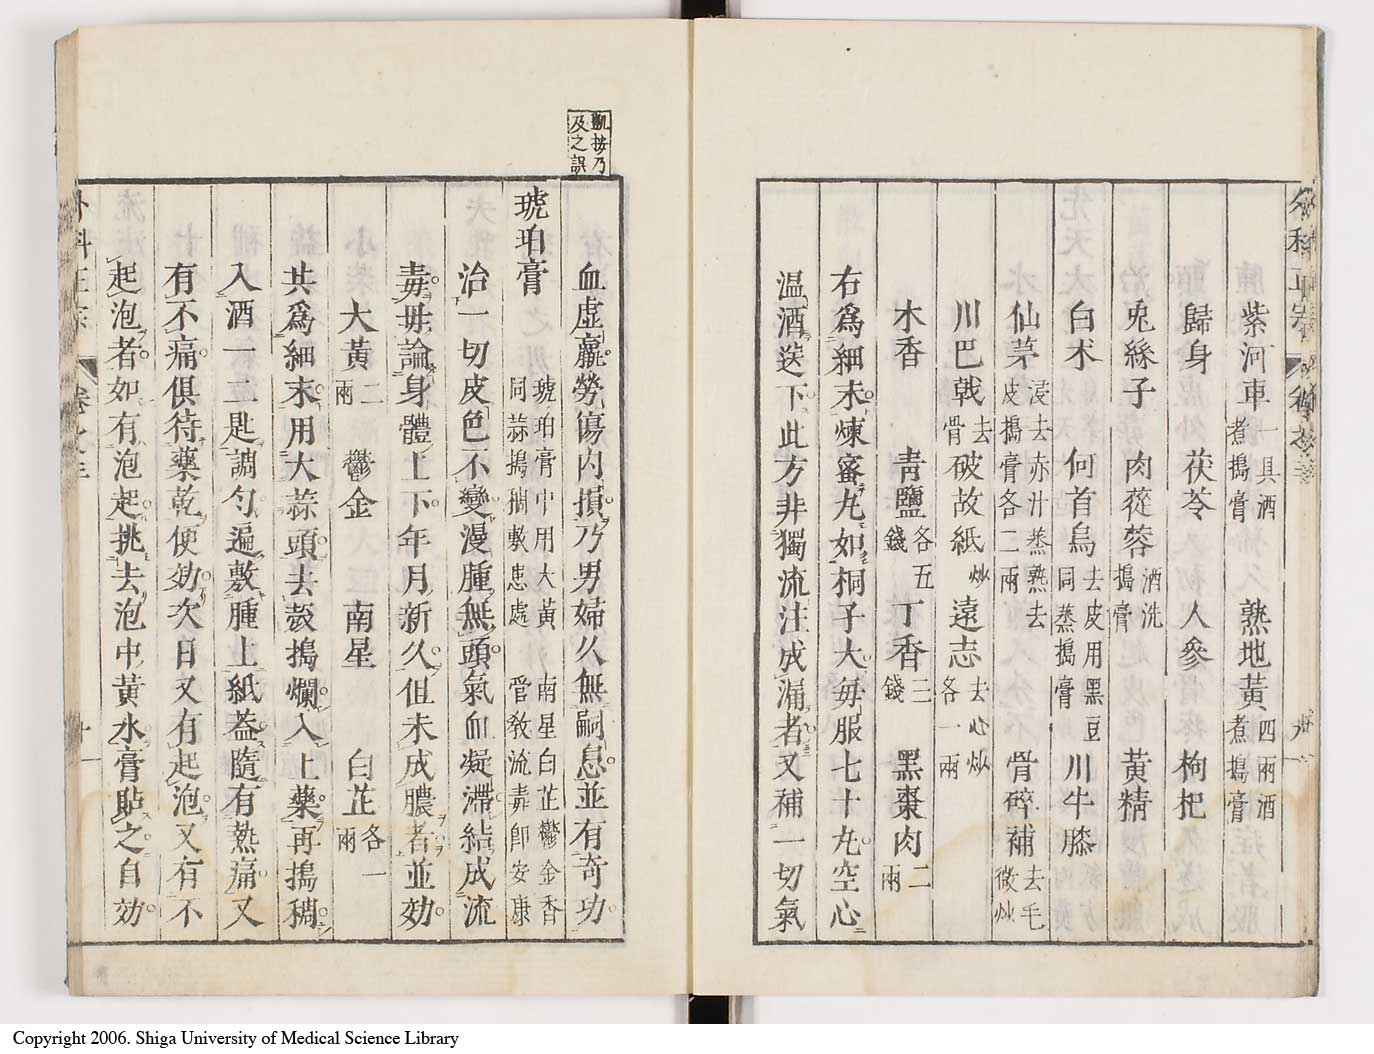 紫河車一具酒煮搗膏　熟地黃四兩酒煮搗膏
歸身　茯苓　人參　枸杞
兎絲子　肉蓯蓉酒洗搗膏　黃精
白术　何首烏去皮用黑豆同蒸搗膏　川牛膝
仙茅浸去赤汁蒸熟去皮搗膏各二兩　骨碎補去毛微炒
川巴戟去骨　破故紙炒　遠志去心炒各一兩
木香　青鹽各五錢　丁香三錢　黑棗肉二兩
右爲細末煉蜜丸如桐子大毎服七十丸空心
温酒送下此方非獨流注成漏者又補一切氣
血虛羸勞傷内損乃男婦久無嗣息並有奇功
凱按乃
及之誤
琥珀膏　琥珀膏中用大黃　南星白芷鬱金香
同蒜搗稠敷患處　管教流毒卽安康
治一切皮色不變漫腫無頭氣血凝滯結成流
毒毋論身體上下年月新久但未成膿者並効
大黃二兩　鬱金　南星　白芷各一兩
共爲細末用大蒜頭去殼搗爛入上藥再搗稠
入酒一二匙調勻遍敷腫上紙蓋隨有熱痛又
有不痛俱待藥乾便効次日又有起泡又有不
起泡者如有泡起挑去泡中黃水膏貼之自効
外科正宗　卷之三　十一
Copyright 2006. Shiga University of Medical Science Library